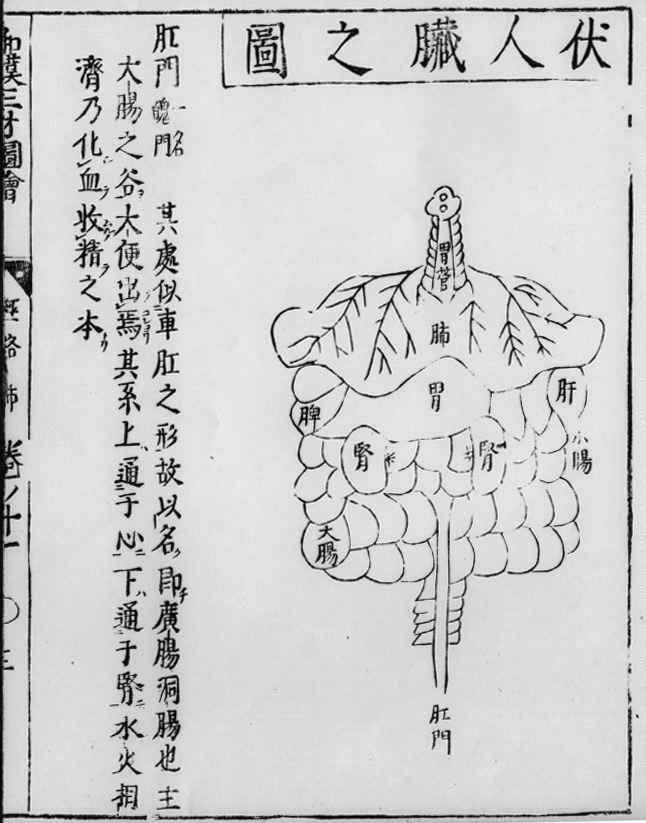 伏人臓之圖
胃菅
肺
胃
肝
脾
腎
腎
小腸
大腸
肛門
肛門 一名魄門 其處似車肛之形故以名ク即チ廣腸洞腸也主
大腸之谷ヲ大便出焉其系上ハ通于心ニ下ハ通于腎ニ水火相
濟乃化血ヲ收精ヲ之本
和漢三才圖會
經絡 卷ノ十一 〇 三